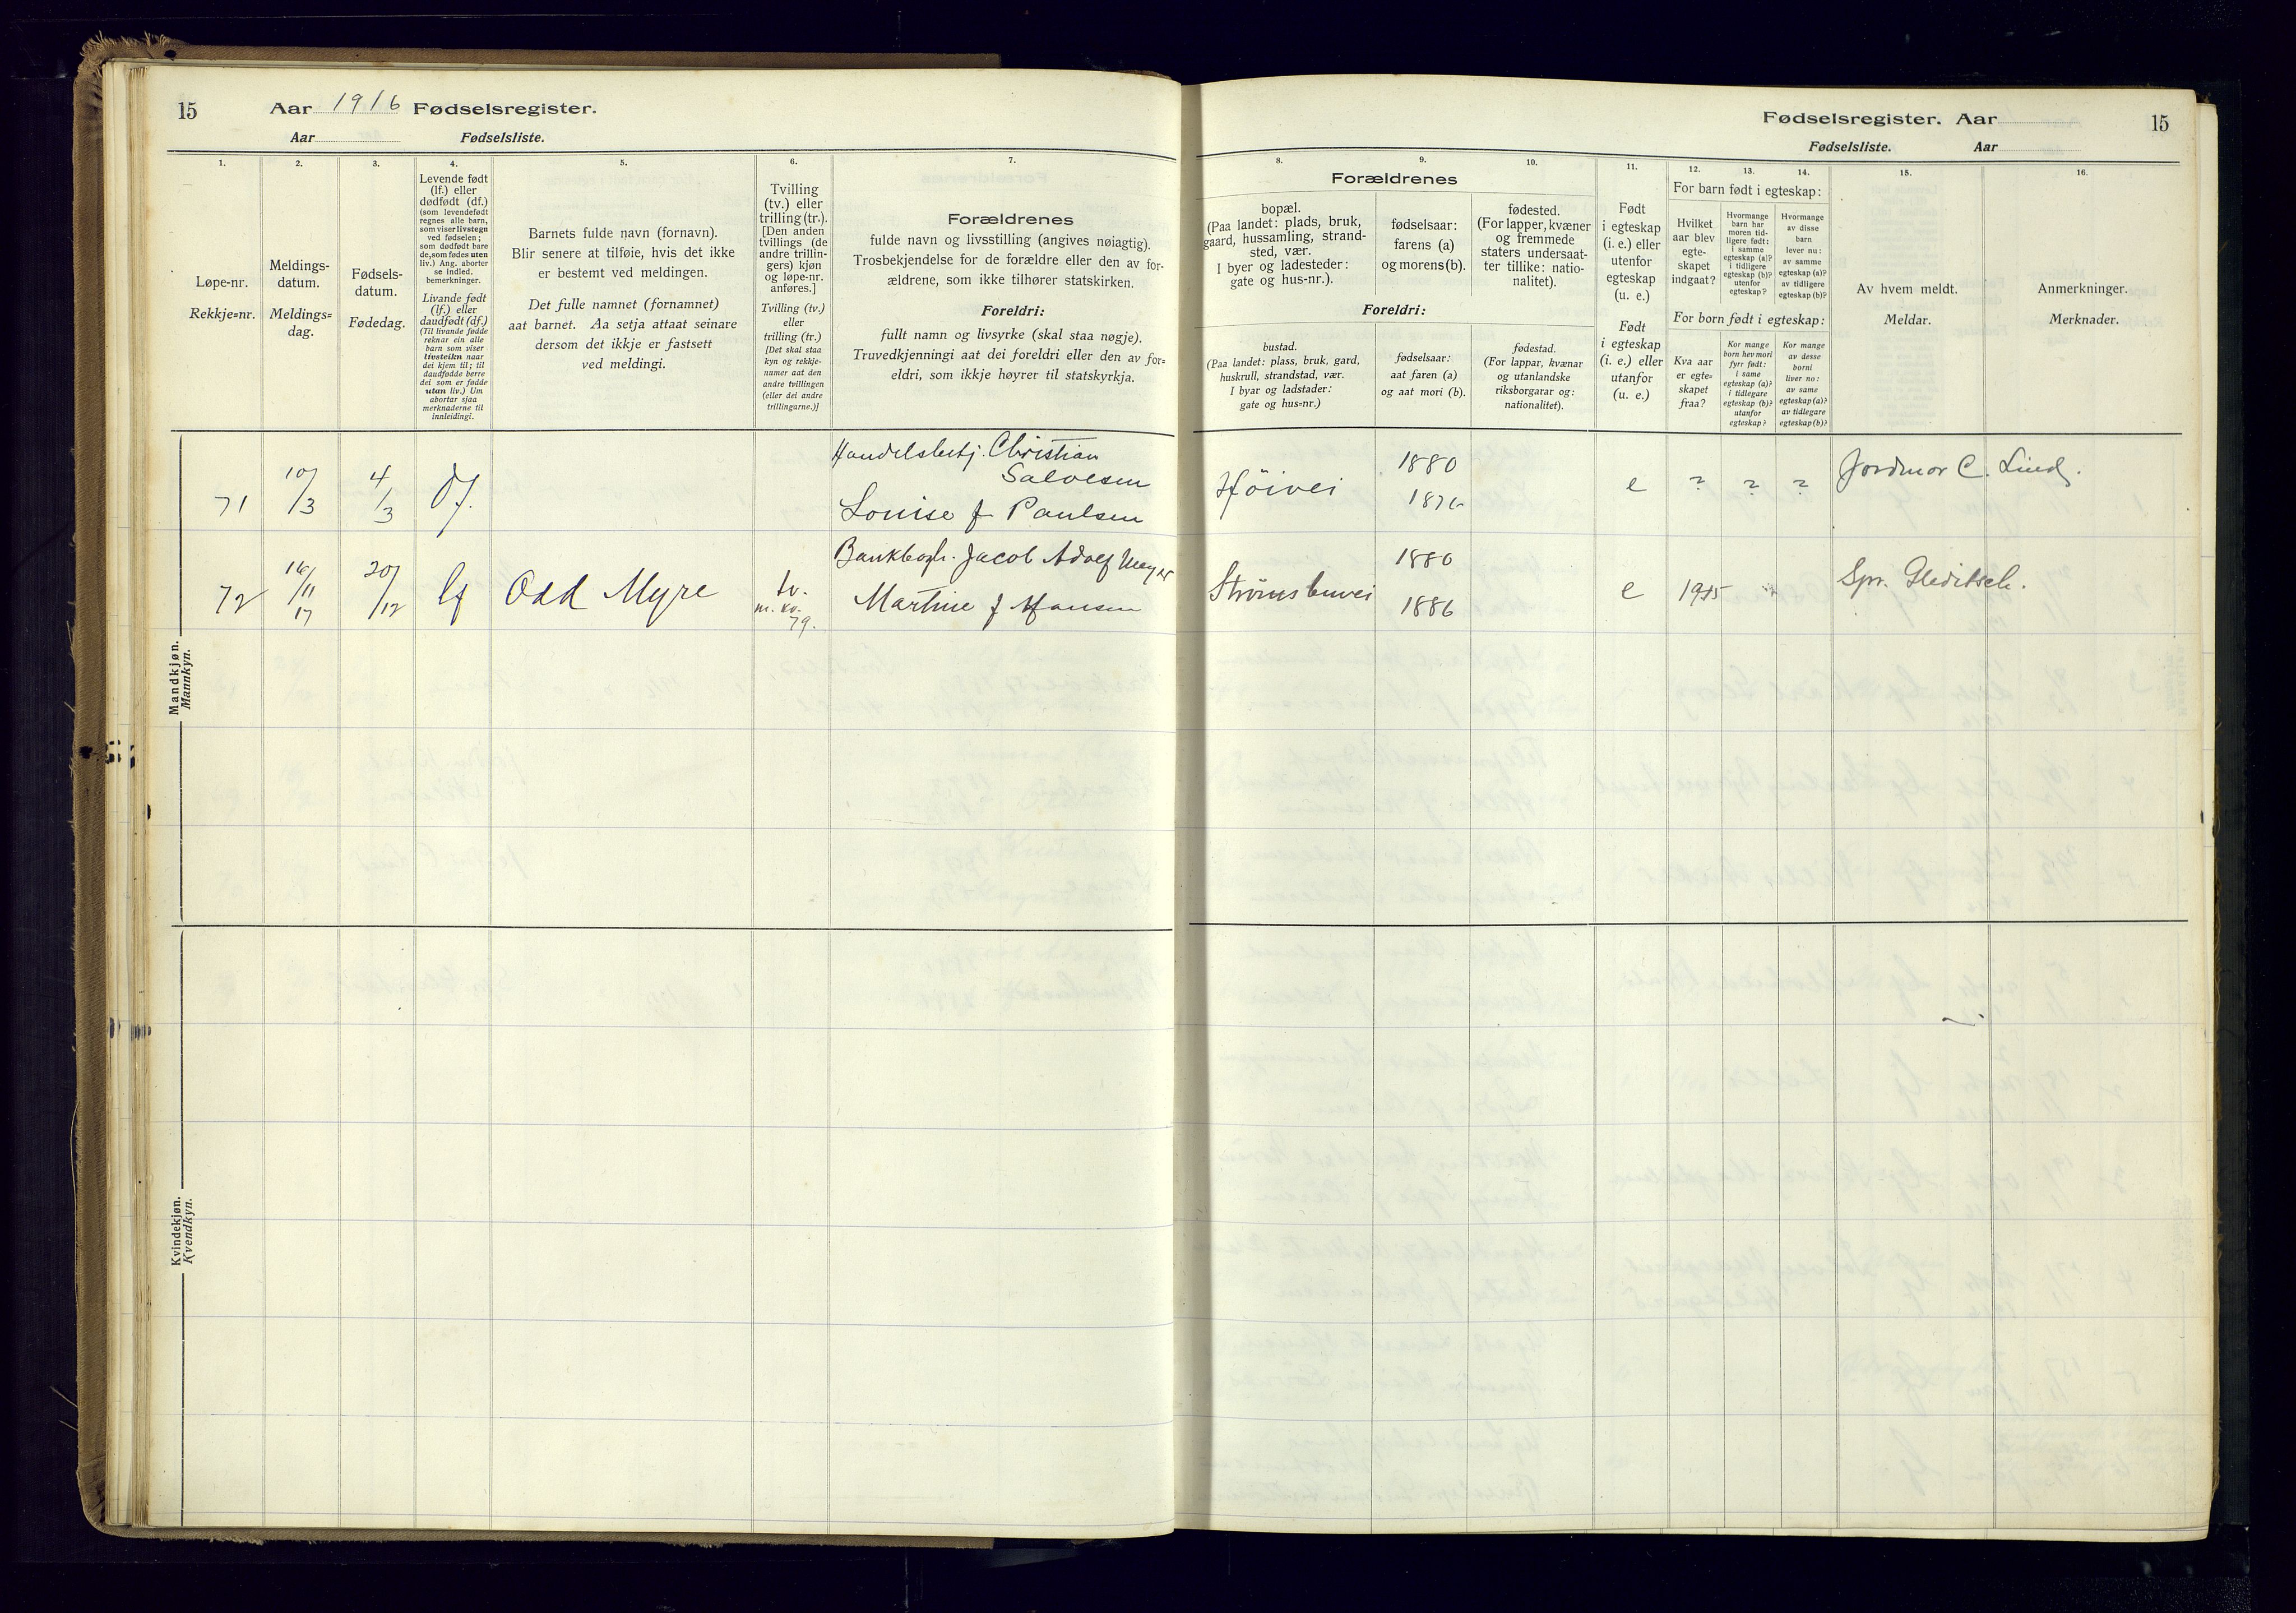 15 Aar 1916 Fødselsregister.
Aar Fødselsliste.
Fødselsregister. Aar 15
Fødselsliste. Aar
1. 2. 3. 4. 5. 6. 7.
8. 9. 10. 11. 12. 13. 14. 15. 16.
Løpe-nr.
Rekkje=nr.
Meldings-
datum.
Meldings=
dag.
Fødsels-
datum.
Fødedag.
Levende født
(lf.) eller
dødfødt (df.)
(som levendefødt
regnes alle barn,
som viser livstegn
ved fødselen;
som dødfødt bare
de, som fødes uten
liv.) Ang. aborter
se indled.
bemerkninger.
Livande født
(lf.) eller
daudfødt (df.)
(Til livande fødde
reknar ein alle
barn som viser
livsteikn naar
dei kjem til; til
daudfødde berre
dei som er fødde
utan liv.) Um
abortar sjaa
merknaderne til
innleidingi.
Barnets fulde navn (fornavn).
Blir senere at tilføie, hvis det ikke
er bestemt ved meldingen.
Det fulle namnet (fornamnet)
aat barnet. Aa setja attaat seinare
dersom det ikkje er fastsett
ved meldingi.
Tvilling
(tv.) eller
trilling (tr.).
[Den anden
tvillings (de
andre trillin-
gers) kjøn
og løpe-nr.
anføres.]
Tvilling (tv.)
eller
trilling (tr.)
[Det skal staa
kyn og rekkje-
numer aat den
andre tvillingen
(eller dei andre
trillingarne.)]
Forældrenes
fulde navn og livsstilling (angives nøiagtig).
Trosbekjendelse for de forældre eller den av for-
ældrene, som ikke tilhører statskirken.
Foreldri:
fullt namn og livsyrke (skal staa nøgje).
Truvedkjenningi aat dei foreldri eller den av for=
eldri, som ikkje høyrer til statskyrkja.
Forældrenes
bopæl.
(Paa landet: plads, bruk,
gaard, hussamling, strand-
sted, vær.
I byer og ladesteder:
gate og hus-nr.).
fødselsaar:
farens (a)
og morens (b).
fødested.
(For lapper, kvæner
og fremmede
staters undersaat-
ter tillike: natio-
nalitet).
Foreldri:
bustad.
(Paa landet: plass, bruk, gard,
huskrull, strandstad, vær.
I byar og ladstader:
gate og hus=nr.)
fødselsaar:
aat faren (a)
og aat mori (b).
fødestad.
(For lappar, kvænar
og utanlandske
riksborgarar og:
nationalitet).
Født
i egteskap
(i. e.) eller
utenfor
egteskap
(u. e.)
Født
i egteskap
(i. e.) eller
utanfor
(u. e.)
For barn født i egteskap:
Hvilket
aar blev
egte-
skapet
indgaat?
Hvormange
barn har
moren tid-
ligere født:
i samme
egteskap (a)?
i tidligere
egteskap (b)?
utenfor
egteskap?
Hvormange
av disse
barn
lever nu:
av samme
egteskap (a)?
av tidligere
egteskap (b)?
For born født i egteskap:
Kva aar
er egte=
skapet
fraa?
Kor mange
born hev mori
fyrr født:
i same
egteskap (a)?
i tidlegare
egteskap (b)?
utanfor
egteskap?
Kor mange
av desse
borni
liver no:
av same
egteskap (a)?
av tidlegare
egteskap (b)?
Av hvem meldt.
Meldar.
Anmerkninger.
Merknader.
Mandkjøn.
Mannkyn.
Handelsbetj. Christian
Salvesen
71 10/3 4/3 df.
Louise f Paulsen
Høivei 1880
e ? ? ? Jordmor C. Lind.
Bankbogh. Jacob Adolf Meyer
72 20/12 lf Odd Myre tv.
Martine f Hansen
Strømsbuvei 1880
1886 e 1915 Spr. Gleditsch.
Kvindekjøn.
Kvendkyn.